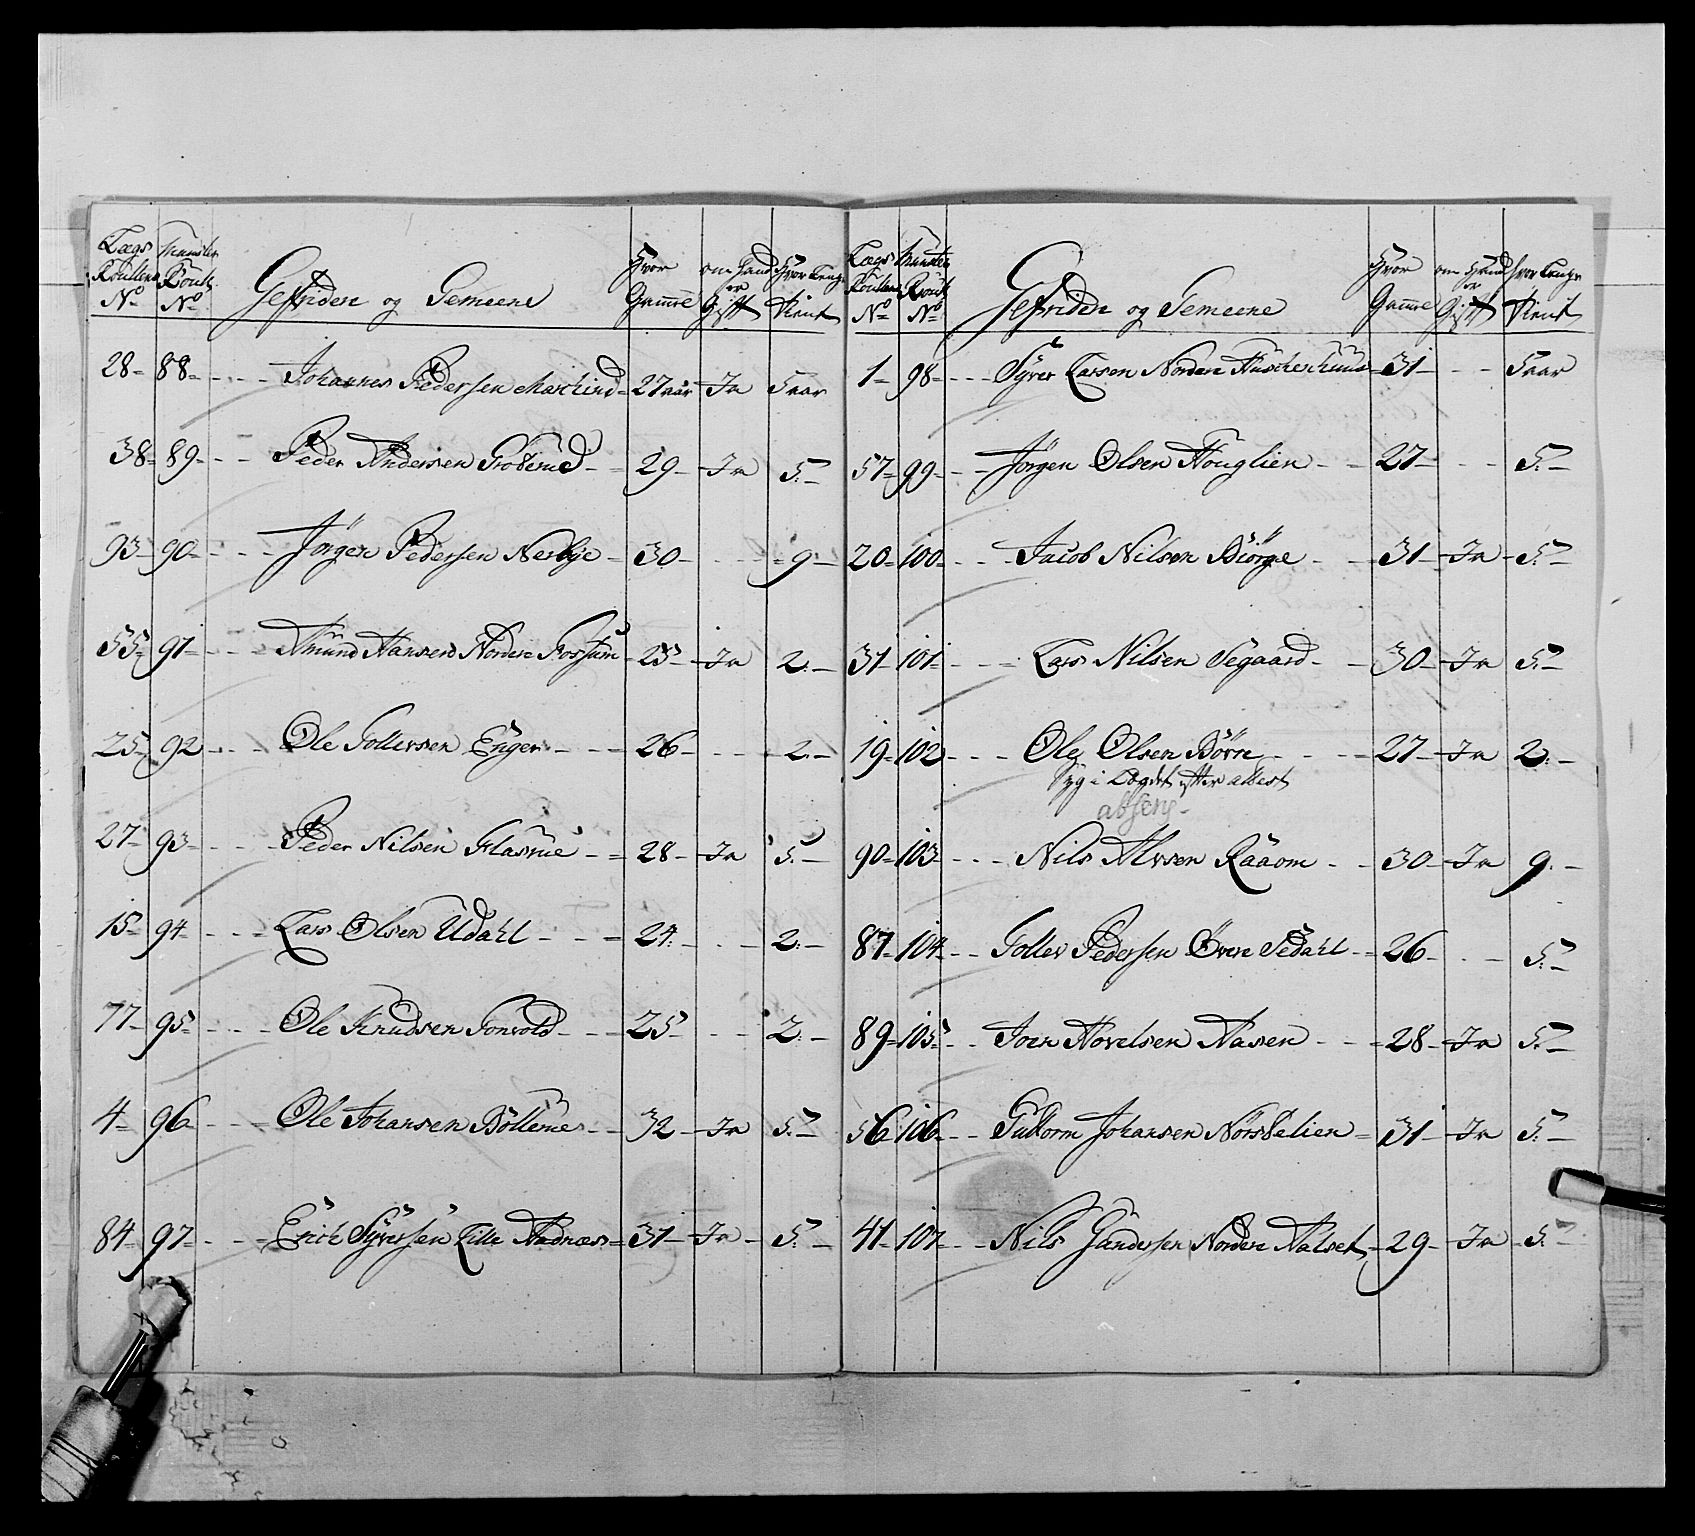 Lægs Roullens No Nummer Roull No Gefriden og Gemeene Hvor Gamme om hand er Gift Hvor lenge tient
28 88 Johannes Pedersen 27 aar Ja 5 aar
38 89 Peder Andersen 29 Ja 5
93 90 Jörgen Pedersen Nerbye 30 9
55 91 Amund Hansen Nordere Fossum 23 Ja 2
25 92 Ole Gollersen Enger 26 2
27 93 Peder Nilsen Flasrue 28 Ja 5
15 94 Lars Olsen Udahl 24 2
77 95 Ole Knudsen Tonvold 25 2
4 96 Ole Johansen Böllerue 32 Ja 5
84 97 Erich Syversen Lille 31 Ja 5
Lægs Roullens No Roull No Gefriden og Gemeene Hvor Gamme om hand er Gift hvor lenge Tient
1 98 Syver Larsen Nordere 31 5 aar
57 99 Jörgen Olsen Houglien 27 5
20 100 Jacob Nilsen Biörge 31 Ja 5
31 101 Lars Nilsen Segaard 30 Ja 5
19 102 Ole Olsen Börre 27 Ja 2
Syg i Lægdet efter attest
absens
90 103 Nils Alvsen Raaom 30 Ja 9
87 104 Goller Pedersen Övere Sedahl 26 5
89 105 Joen Hovelsen Aasen 28 Ja 5
56 106 Guttorm Johansen 31 Ja 5
41 107 Nils Gundersen Nordere Aalset 29 Ja 5